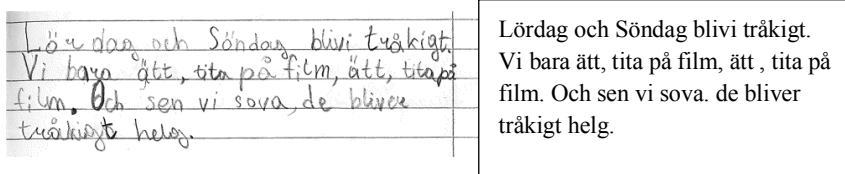 Lördag och Söndag blivi tråkigt.
Vi bara ätt, tita på film, ätt, tita på
film. Och sen vi sova, de bliver
tråkigt helg.
Lördag och Söndag blivi tråkigt.
Vi bara ätt, tita på film, ätt , tita på
film. Och sen vi sova. de bliver
tråkigt helg.